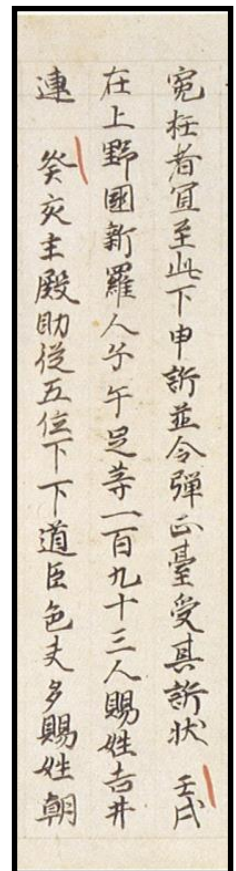 寃枉者宜至此下申訴並令弾正臺受其訴状　壬戌
在上野國新羅人子午足等一百九十三人賜姓吉井
連　癸亥主殿助従五位下下道臣色夫多賜姓朝